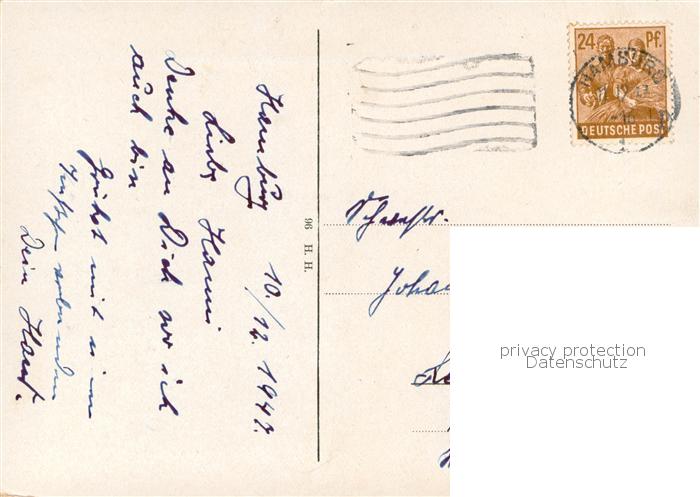 Hamburg 10./12. 1947.
Liebe Hanni
Denke an Dich wo ich
auch bin
Grüßt mit einem
verbunden
Dein Hans.
96 H. H.
24 Pf.
HAMBURG
DEUTSCHE POST
Schwester
Joha
privacy protection
Datenschutz